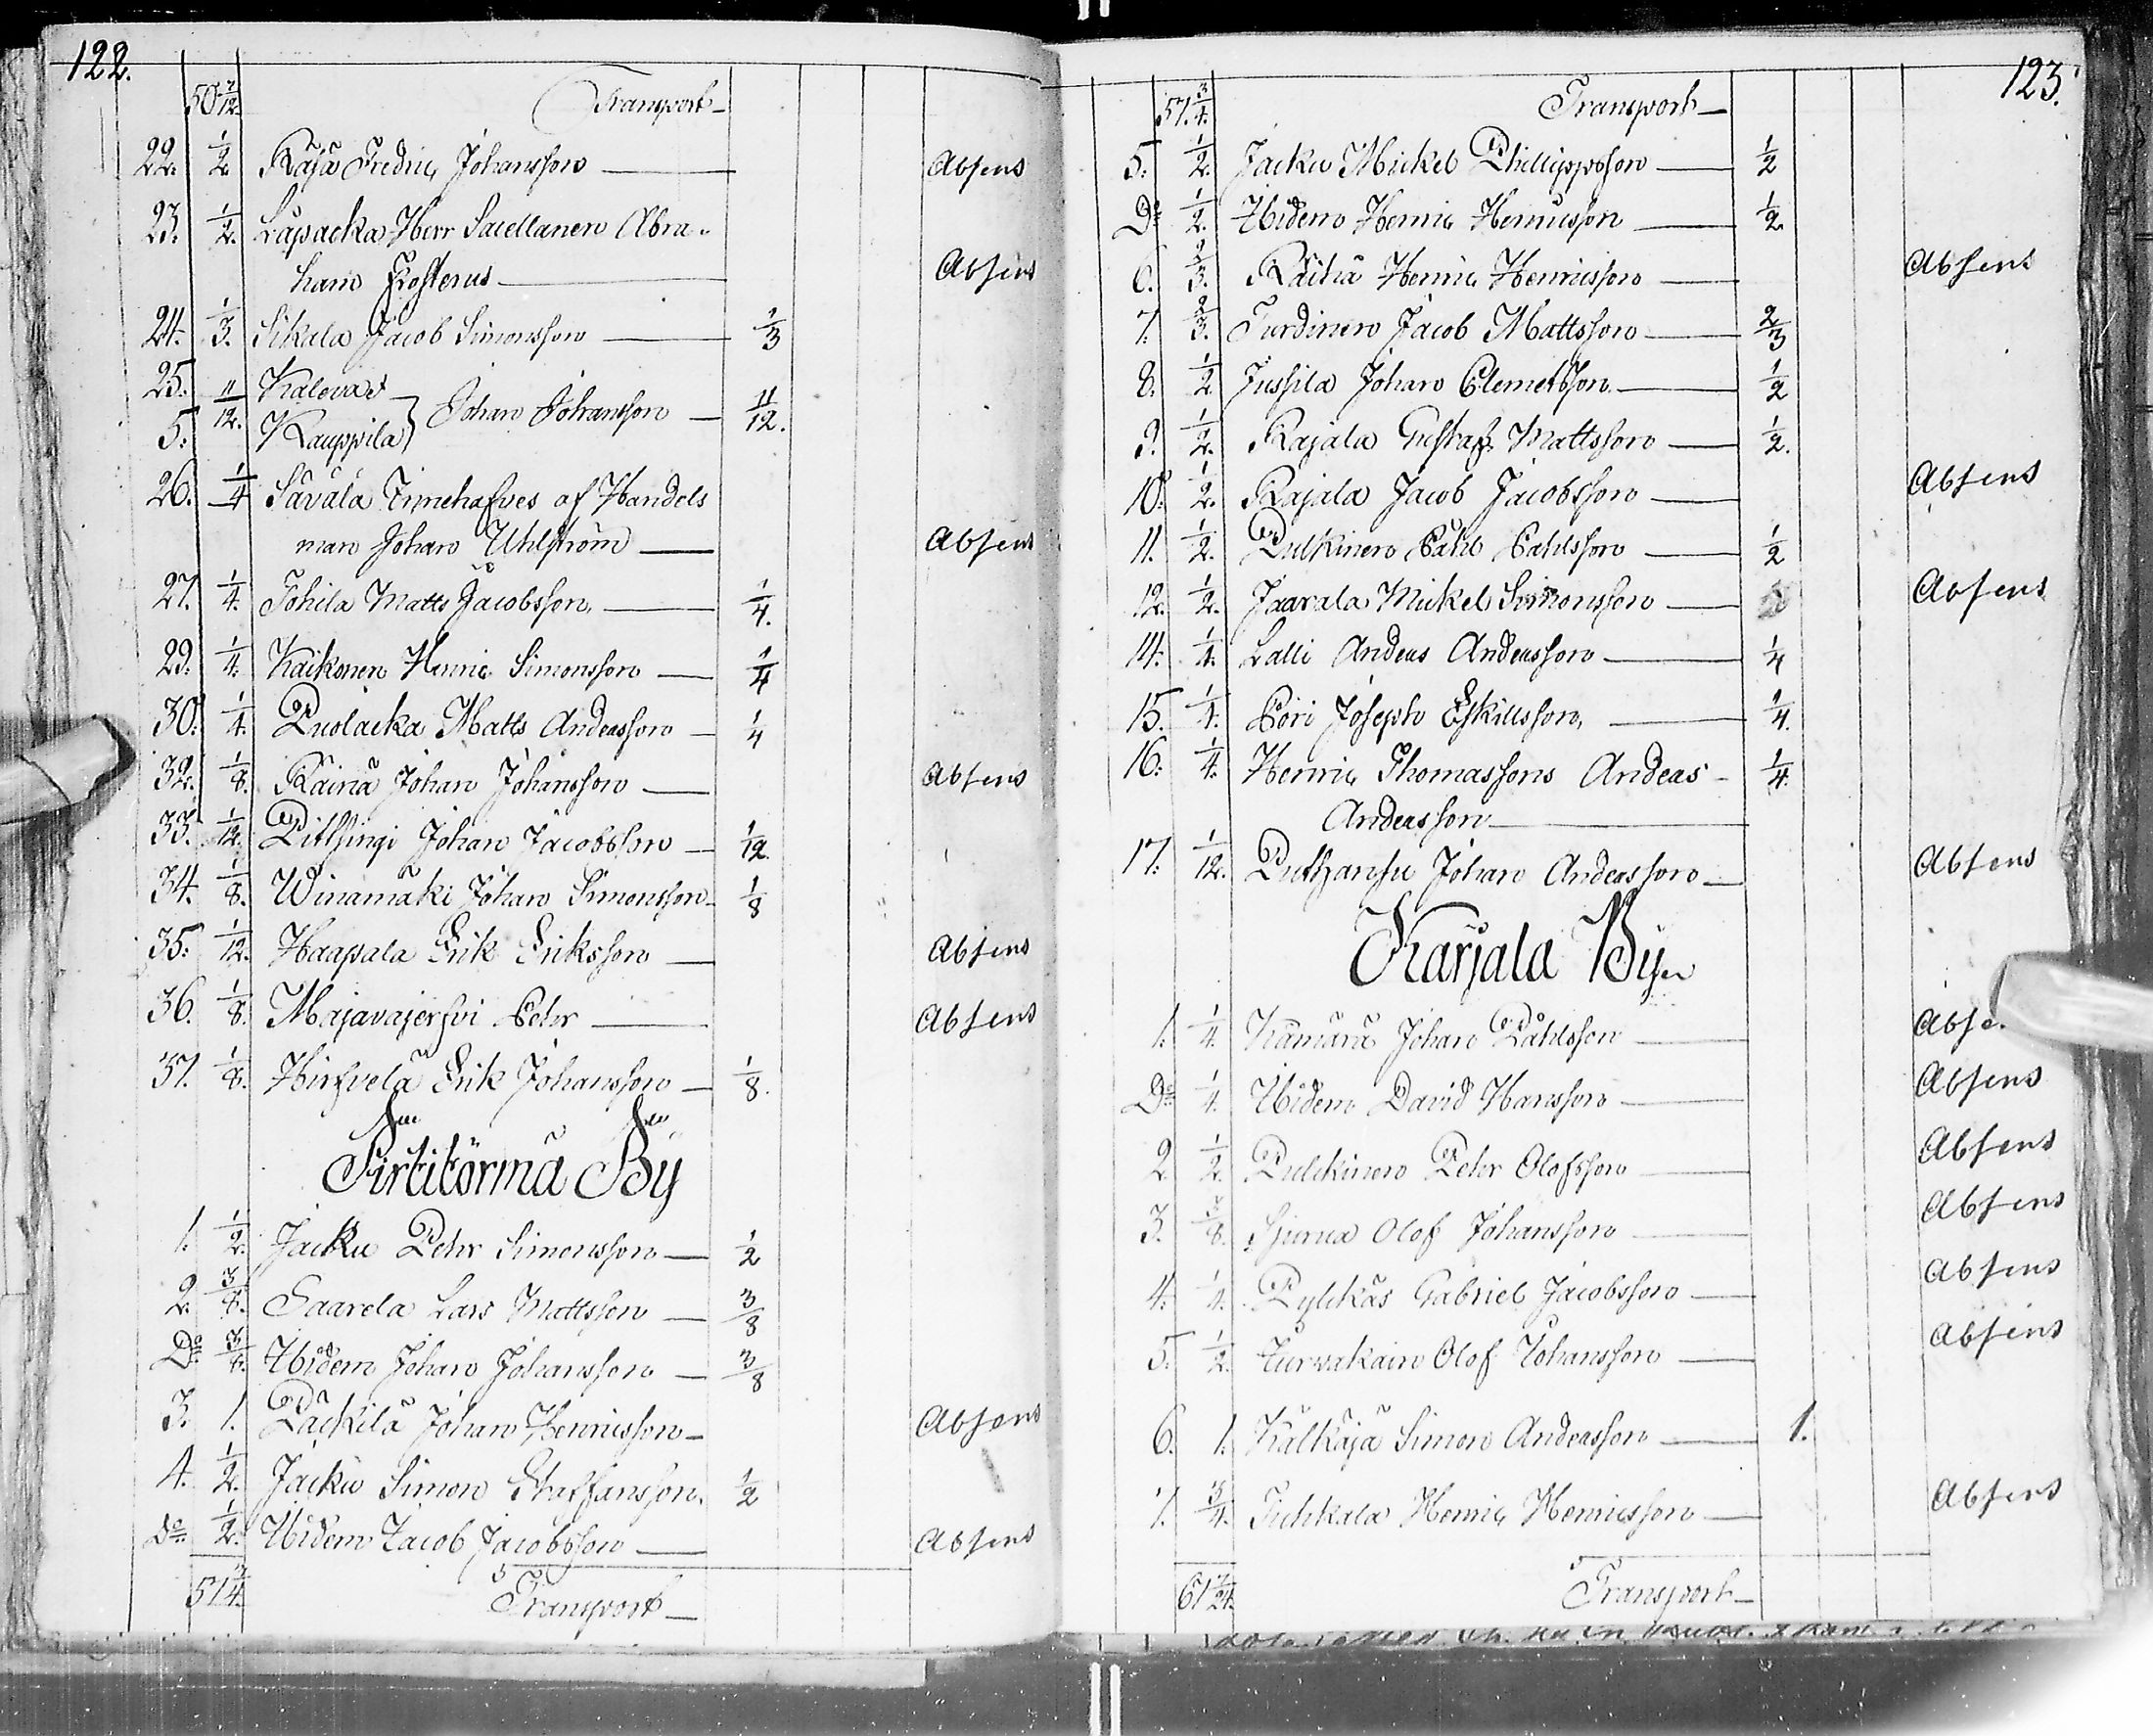 122.
50 7/12. Transport
22. 1/2. Räjä Fredric Johansson — Absens
23. 1/2. Lapacka Herr Sacellanen Abra-
ham Frosterus — Absens
24. 1/3. Sikala Jacob Simonsson — 1/3
25. 11/12. Kalovat } Johan Johansson — 11/12.
5. Kauppila
26. 1/4 Sävälä Innehafves af Handels
man Johan Uhlström — Absens
27. 1/4. Tohila Matts Jacobsson — 1/4.
29. 1/4. Kaikonen Henric Simonsson — 1/4
30. 1/4. Puolacka Matts Andersson — 1/4
32. 1/8. Räinä Johan Johansson — Absens
33. 1/12. Johan Jacobsson — 1/12.
34. 1/8. Winamäki Johan Simonsson — 1/8
35. 1/12. Haapala Erik Eriksson — Absens
36. 1/8. Majavajerfvi Pehr — Absens
37. 1/8. Hirfvelä Erik Johansson — 1/8.
By
1. 1/2. Jacku Pehr Simonsson — 1/2
2. 3/8. Saarela Lars Mattsson — 3/8
Do 3/8. Ibidem Johan Johansson — 3/8
3. 1. Päckilä Johan Henricsson — Absens
4. 1/2. Jacku Simon Staffansson. 1/2
Do 1/2. Ibidem Jacob Jacobsson — Absens
57 3/4. Transport
123.
57 3/4. Transport
5. 1/2. Jacku Mickel Phillippsson — 1/2
Do 1/2. Ibidem Henric Henricsson — 1/2
6. 2/3. Räihä Henric Henricsson — Absens
7. 2/3. Turdinen Jacob Mattsson — 2/3
8. 1/2 Jussila Johan Clemetsson — 1/2
9. 1/2. Rajala Gustaf Mattsson — 1/2.
10. 1/2. Rajala Jacob Jacobsson — Absens
11. 1/2. Pulkinen Påhl Påhlsson — 1/2
12. 1/2. Jaarala Mickel Simonsson — Absens
14. 1/4. Lalli Anders Andersson — 1/4
15. 1/4. Pori Joseph Eskillsson — 1/4.
16. 1/4. Henric Thomassons Anders 1/4.
Andersson
17. 1/12. Johan Andersson — Absens
Karjala By
1. 1/4. Kämärä Johan Påhlsson — Abse
Do 1/4. Ibidem David Hansson — Absens
2. 1/2. Pulckinen Pehr Olofsson — Absens
3. 3/8. Olof Johansson — Absens
4. 1/4. Pylckäs Gabriel Jacobsson — Absens
5. 1/2. Turvakain Olof Johansson — Absens
6. 1. Kälkäjä Simon Andersson — 1.
7. 3/4. Tuhkala Henric Henricsson — Absens
61 7/24. Transport